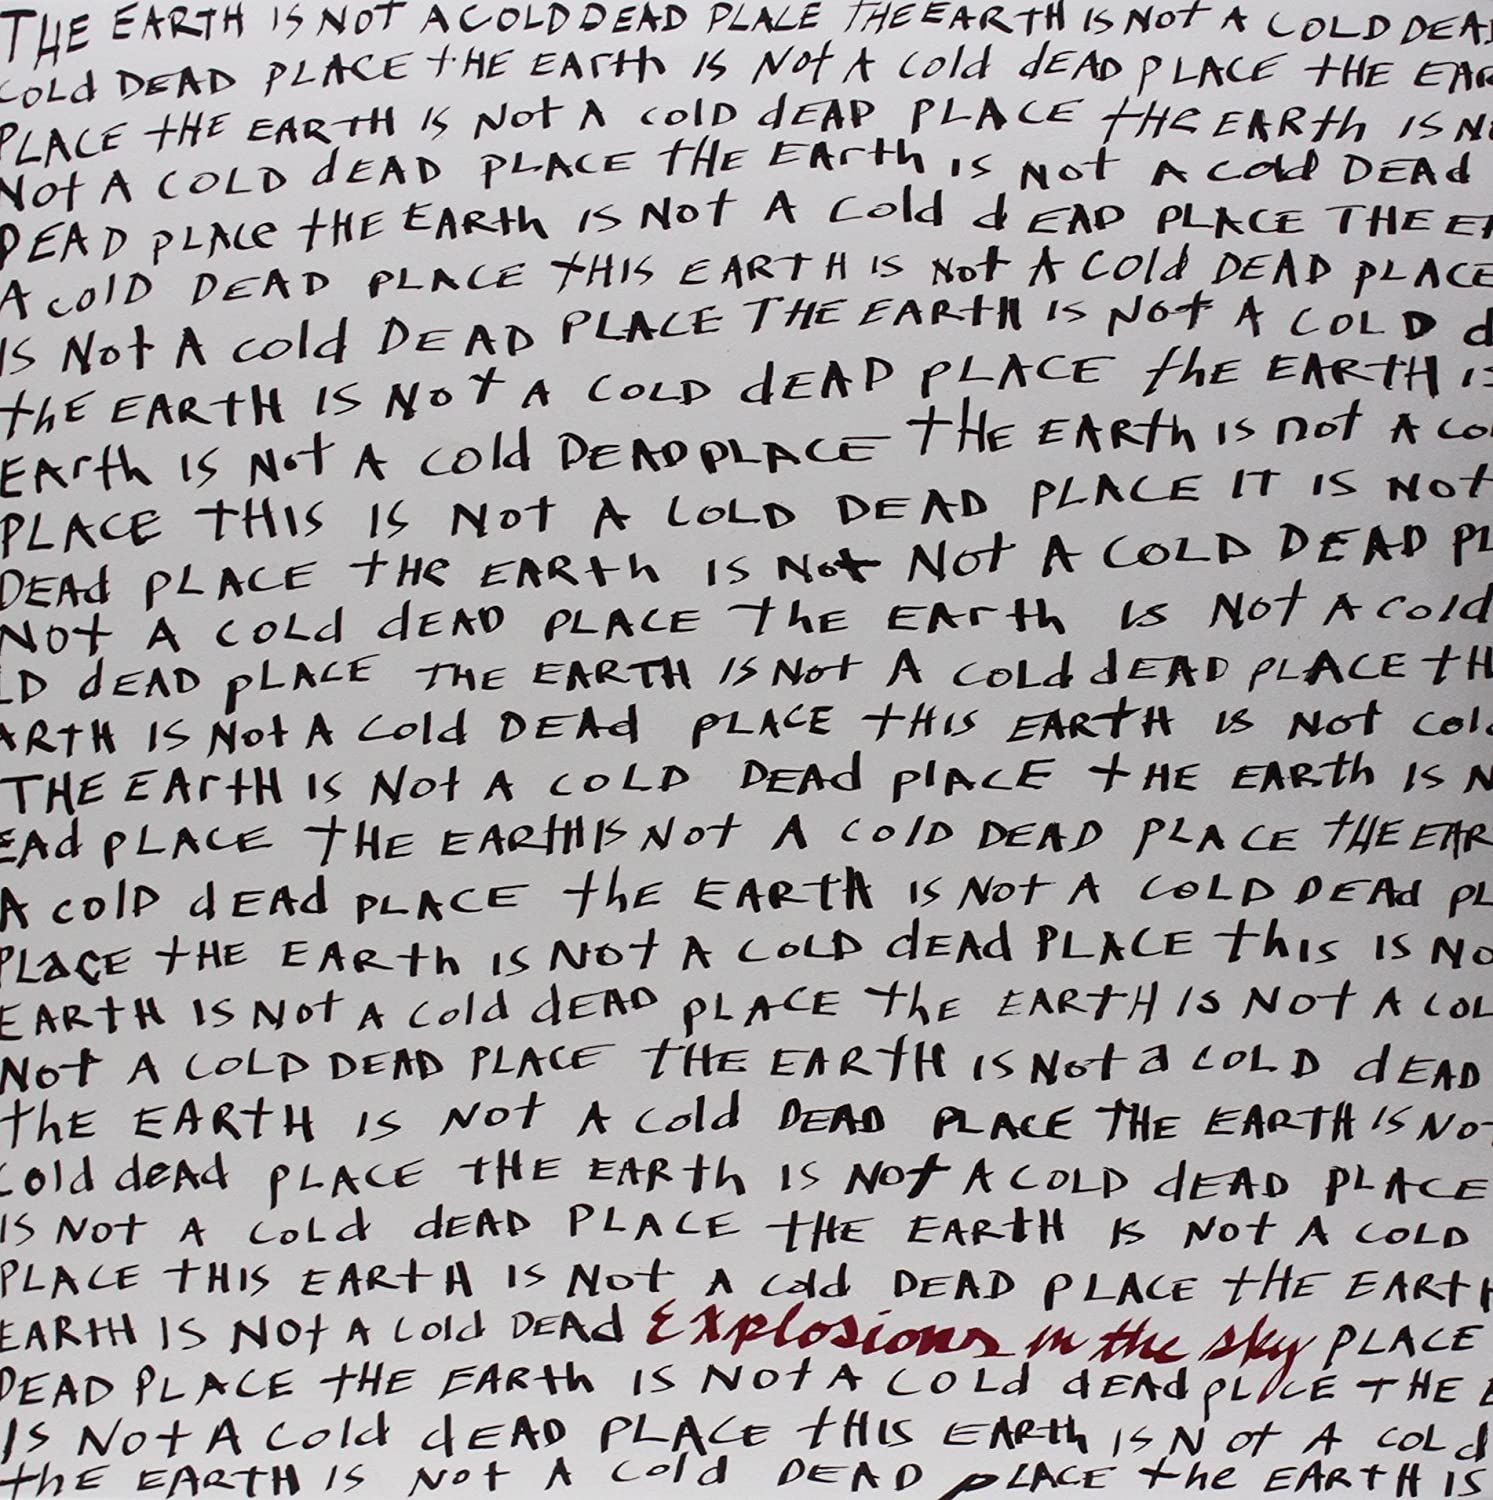 THE EARTH IS NOT A COLD DEAD PLACE THE EARTH IS NOT A COLD DEA
COLd DEAD PLACE tHE EArth IS Not A cold dEAD PLACE tHE EAR
PLACE tHE EARTH IS Not A colD dEAD PLACE tHe EARth IS N
Not A COLD dEAD PLACE tHE EArth IS Not A cold DEAd
DEAD PLACe tHE EARth IS Not A cold dEAD PLACE THE E
A colD DEAD PLACE tHIS EARTH IS Not A cold DEAD PLACE
IS Not A cold DEAD PLACE THE EARtH IS Not A COLD d
thE EARtH IS Not A COLD dEAD PLACE thE EARtH IS
EArth IS Not A cold DEAD PLACE tHE EARth IS not A co
PLACE tHIS IS Not A COLD DEAD PLACE IT IS Not
DEAd PLACE tHe EARth IS Not Not A COLD DEAD PL
Not A COLd dEAD PLACE thE EArth IS Not A cold
LD dEAD pLACE THE EARTH IS Not A COLd dEAD PLACE tH
ARTH IS Not A cold DEAd PLACE tHIS EARtH IS Not col
THE EArtH IS Not A COLD DEAd plACE tHE EARth IS N
EAd PLACE tHE EARtH IS Not A colD DEAD PLACE tHE EAR
A colD dEAd PLACE thE EARtH IS Not A COLD DEAd PL
PLaCE tHE EARth IS Not A COLD dEAd PLACE thIS IS No
EARtH IS Not A cold dEAD PLACE thE EARtH IS Not A COL
Not A COLD DEAD PLACE tHE EARtH IS Not a COLD dEAD
thE EARtH IS Not A cold DEAD PLACE THE EARTH IS No
cold deAd PLACE tHE EARth IS Not A COLD dEAD PLACE
IS Not A COLd dEAD PLACE tHE EARtH IS Not A COLD
PLACE tHIS EARtH IS Not A cold DEAD PLACE tHE EARt
EARtH IS NOt A cold DEAd Explosions in the sky PLACE
DEAD PLACE tHE EARth IS Not A COLd dEAd pLACE tHE E
IS Not A cold dEAD PLACE tHIS EARth IS Not A COLd
thE EARTH IS Not A cold DEAD PLACE the EARtH IS